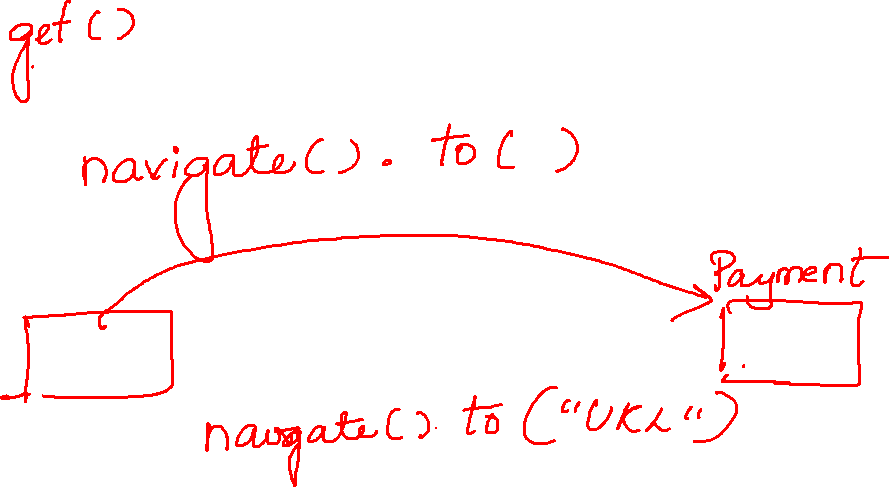 get()
navigate(). to( )
Payment
navgate(). to ("URL")